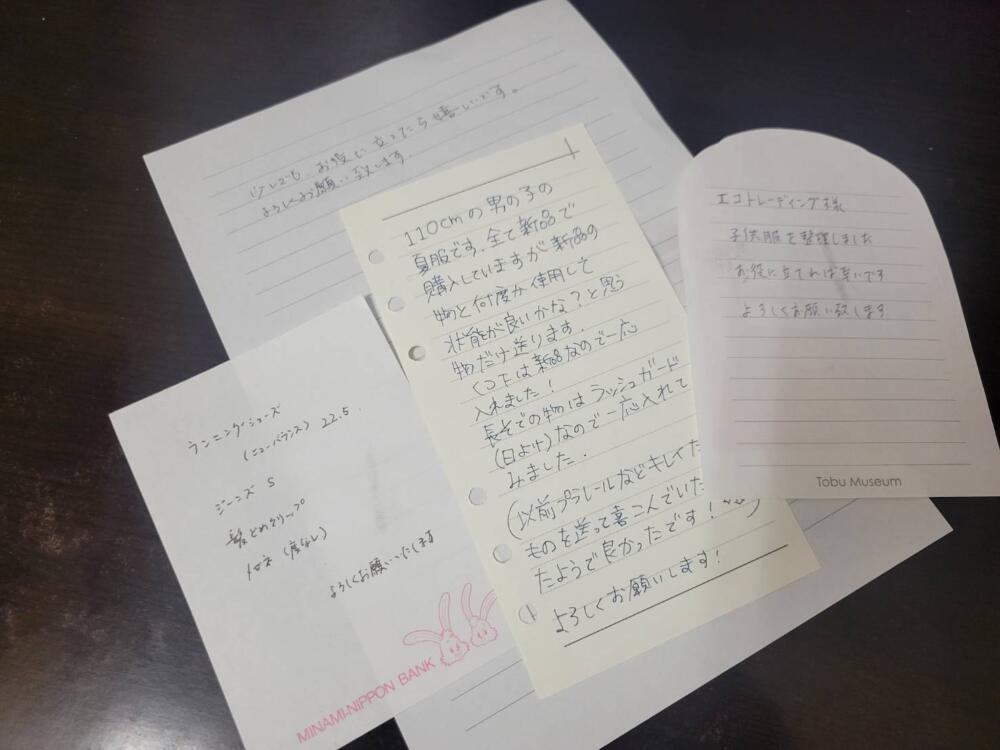 少しでも お役に立ったら嬉しいです。
よろしくお願い致します
110cmの男の子の
夏服です。全て新品で
購入していますが新品の
物と何度か使用して
状態が良いかな?と思う
物だけ送ります。
くつ下は新品なので一応
入れました!
長そでの物はラッシュガード
(日よけ)なので一応入れて
みました.
(以前プラレールなどキレイな
ものを送って喜こんでいた
たようで良かったです!
よろしくお願いします!
エコトレーディング様
子供服を整理しました
お役に立てれば幸いです
よろしくお願い致します
Tobu Museum
ランニングシューズ
(ニューバランス) 22.5.
ジーンズ S
髪どめクリップ
メガネ (度なし)
よろしくお願いいたします
MINAMI-NIPPON BANK